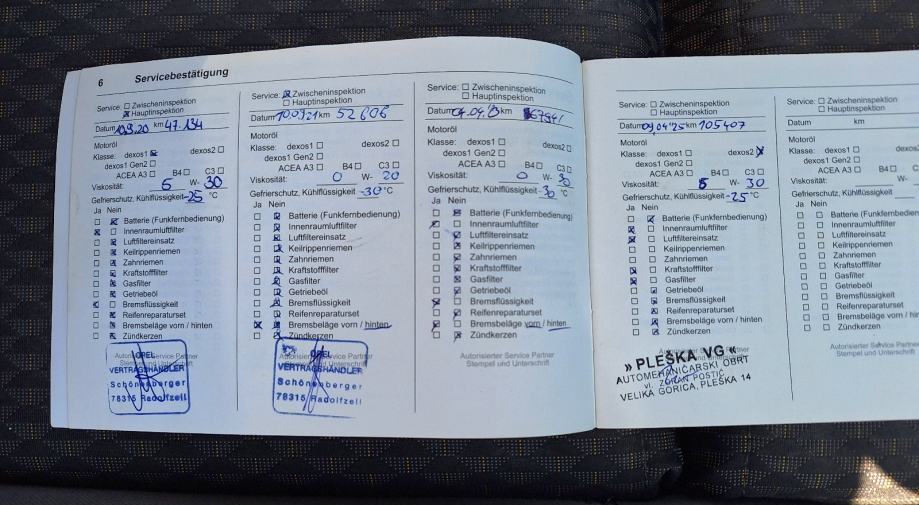 6 Servicebestätigung
Service: Zwischeninspektion
Hauptinspektion
Datum 10.9.20 km 47.134
Motoröl
Klasse: dexos1 dexos2
dexos1 Gen2
ACEA A3 B4 C3
Viskosität: 5 W- 30
Gefrierschutz, Kühlflüssigkeit -25 °C
Ja Nein
Batterie (Funkfernbedienung)
Innenraumluftfilter
Luftfiltereinsatz
Keilrippenriemen
Zahnriemen
Kraftstofffilter
Gasfilter
Getriebeöl
Bremsflüssigkeit
Reifenreparaturset
Bremsbeläge vorn / hinten
Zündkerzen
Autorisierter Service Partner
OPEL
VERTRAGSHÄNDLER
Schönenberger
78315 Radolfzell
Service: Zwischeninspektion
Hauptinspektion
Datum 10.09.21 km 52606
Motoröl
Klasse: dexos1 dexos2
dexos1 Gen2
ACEA A3 B4 C3
Viskosität: 0 W- 20
Gefrierschutz, Kühlflüssigkeit -30 °C
Ja Nein
Batterie (Funkfernbedienung)
Innenraumluftfilter
Luftfiltereinsatz
Keilrippenriemen
Zahnriemen
Kraftstofffilter
Gasfilter
Getriebeöl
Bremsflüssigkeit
Reifenreparaturset
Bremsbeläge vorn / hinten
Zündkerzen
Autorisierter Service Partner
Stempel und Unterschrift
OPEL
VERTRAGSHÄNDLER
Schönenberger
78315 Radolfzell
Service: Zwischeninspektion
Hauptinspektion
Datum 04.04. km
Motoröl
Klasse: dexos1 dexos2
dexos1 Gen2
ACEA A3 B4 C3
Viskosität: 0 W- 30
Gefrierschutz, Kühlflüssigkeit -30 °C
Ja Nein
Batterie (Funkfernbedienung)
Innenraumluftfilter
Luftfiltereinsatz
Keilrippenriemen
Zahnriemen
Kraftstofffilter
Gasfilter
Getriebeöl
Bremsflüssigkeit
Reifenreparaturset
Bremsbeläge vorn / hinten
Zündkerzen
Autorisierter Service Partner
Stempel und Unterschrift
Service: Zwischeninspektion
Hauptinspektion
Datum 09.04.25 km 105407
Motoröl
Klasse: dexos1 dexos2
dexos1 Gen2
ACEA A3 B4 C3
Viskosität: 5 W- 30
Gefrierschutz, Kühlflüssigkeit -25 °C
Ja Nein
Batterie (Funkfernbedienung)
Innenraumluftfilter
Luftfiltereinsatz
Keilrippenriemen
Zahnriemen
Kraftstofffilter
Gasfilter
Getriebeöl
Bremsflüssigkeit
Reifenreparaturset
Bremsbeläge vorn / hinten
Zündkerzen
» PLEŠKA VG «
AUTOMEHANIČARSKI OBRT
vl. ZORAN POSTIĆ
VELIKA GORICA, PLEŠKA 14
Service: Zwischeninspektion
Hauptinspektion
Datum km
Motoröl
Klasse: dexos1
dexos1 Gen2
ACEA A3 B4
Viskosität: W-
Gefrierschutz, Kühlflüssigkeit
Ja Nein
Batterie (Funkfernbedienung)
Innenraumluftfilter
Luftfiltereinsatz
Keilrippenriemen
Zahnriemen
Kraftstofffilter
Gasfilter
Getriebeöl
Bremsflüssigkeit
Reifenreparaturset
Bremsbeläge vorn / hinten
Zündkerzen
Autorisierter Service Partner
Stempel und Unterschrift